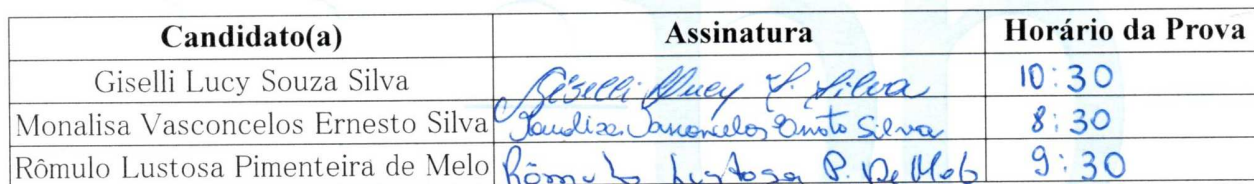 Candidato(a) Assinatura Horário da Prova
Giselli Lucy Souza Silva Giselli Lucy S. Silva 10:30
Monalisa Vasconcelos Ernesto Silva Monalisa Vasconcelos Ernesto Silva 8:30
Rômulo Lustosa Pimenteira de Melo Rômulo Lustosa P. De Melo 9:30